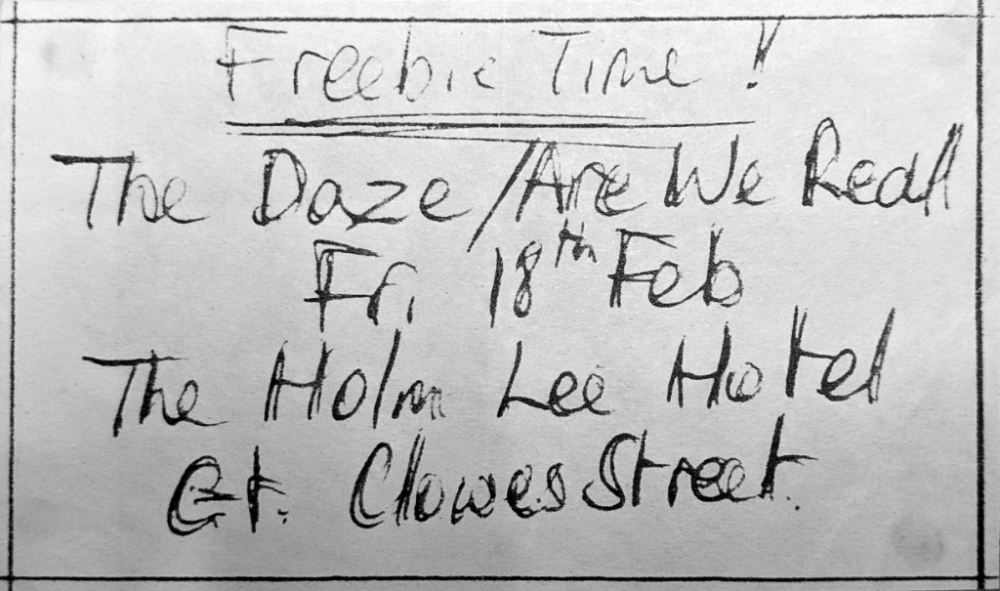 Freebie Time!
The Daze/Are We Real
Fri. 18th Feb
The Holm Lee Hotel
Gt. Clowes Street.